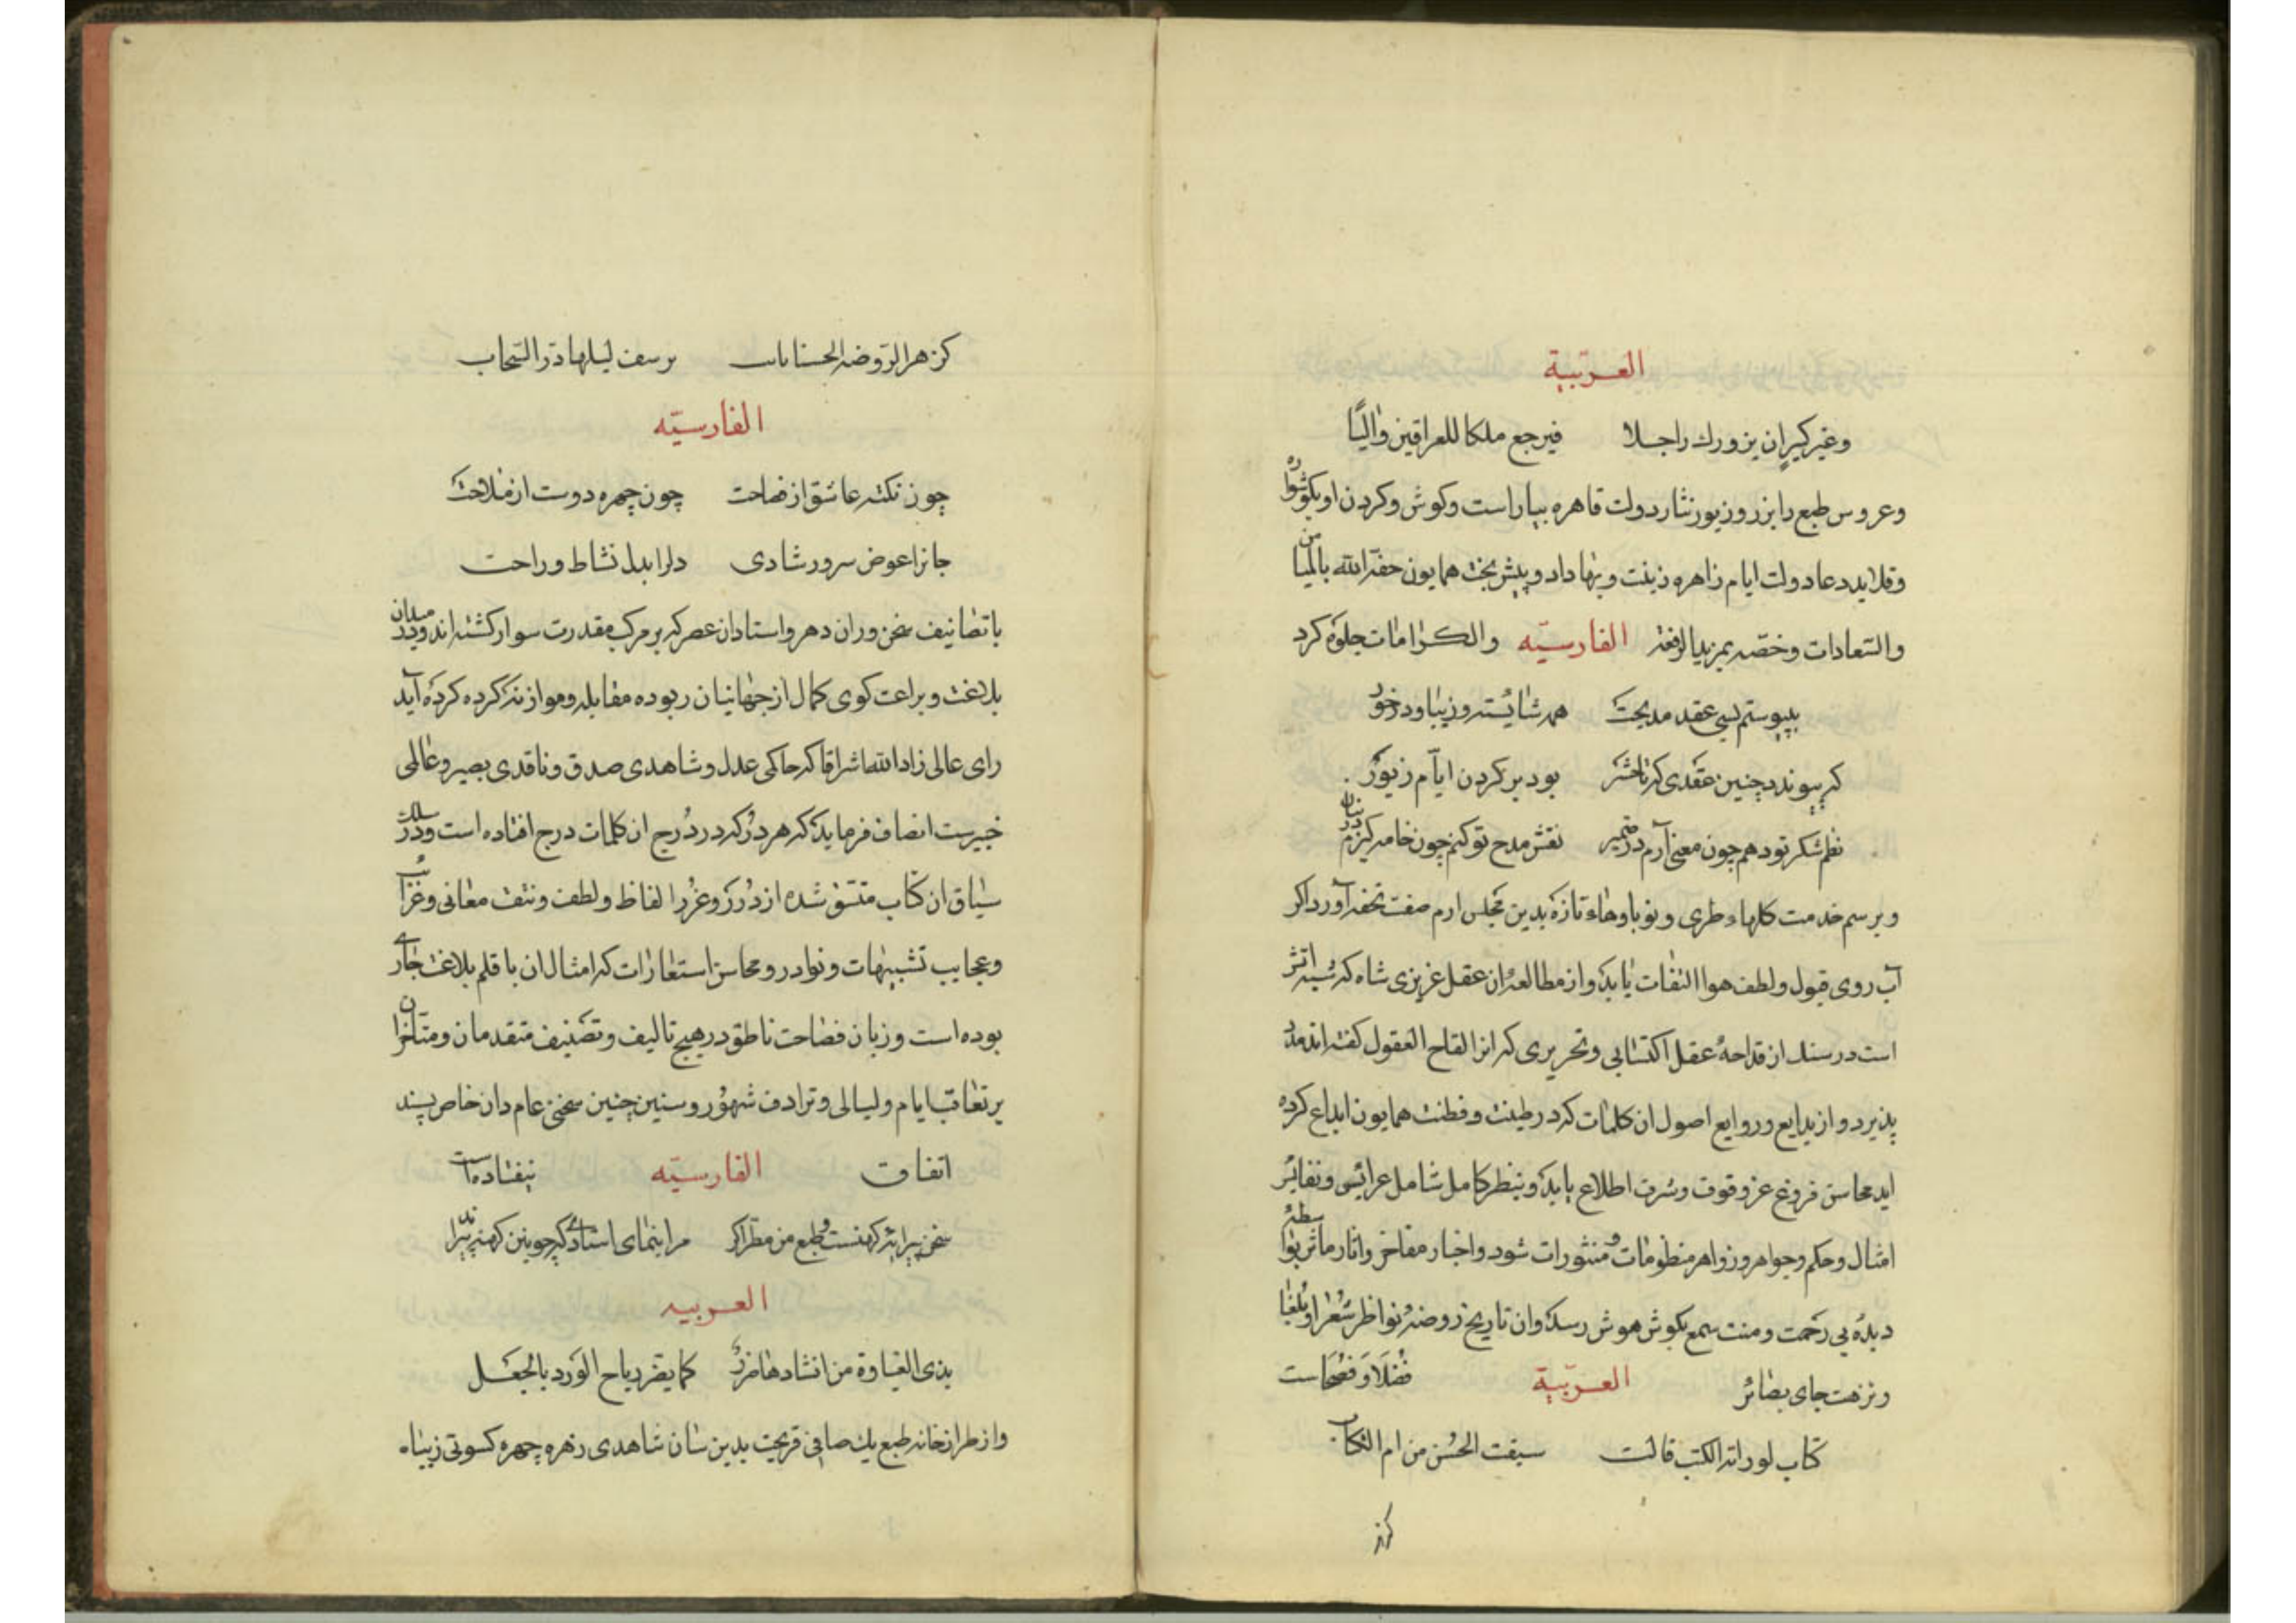 العربية
وغیر کثیر ان یزورك راجلا فیرجع ملکا للعراقین والیا
وعروس طبع را بزر و زیور نثار دولت قاهره بیاراست وکوش وکردن او بکوشواره
وقلاید دعا دولت ایام زاهره زینت و بها داد و پیش تخت همایون حفه الله بالمیامن
والسعادات وخصه بمزید الرفعة الفارسیه والکرامات جلوه کرد
بپیوستم بسی عقد مدیحت همه شایسته و زیبا و در خور
که پیوندد چنین عقدی که تا حشر بود بر کردن ایام زیور
نظم شکر تو دهم چون معنی آرم در ضمیر نقش مدح تو کنم چون خامه کیرم در بنان
و برسم خدمت کلهاء طری و نوباوهاء تازه بدین مجلس ارم صفت تحفه آورد اکر
آب روی قبول و لطف هوا التفات یابد و از مطالعه ان عقل غریزی شاه که
است در سنك از قداحه عقل اکتسابی و تحریری که انرا لقاح العقول کفته اند مدد
پذیرد و از بدایع و روایع اصول ان کلمات که در طینت و فطنت همایون ابداع کرده
اید محاسن فروغ عز وقوف و شرف اطلاع یابد و بنظر کامل شامل عرایس و نفایس
امثال و حکم و جواهر و زواهر منظومات و منثورات شود و اخبار مفاخر و اثار ماثر بواسطه
دیده بی زحمت و منت سمع بکوش هوش رسد و ان تاریخ روضه نواظر شعرا و بلغا
ونزهت جای بصائر العربیة فضلا و فصحاست
کتاب لو راته الکتب قالت سبقت الحسن من ام الکتاب
کزهر
کزهر الروضة الحسنا باتت لیلها در السحاب
الفارسیه
چون نکته عاشق از فصاحت چون چهره دوست از ملاحت
جانرا عوض سرور شادی دلرا بدل نشاط و راحت
با تصانیف سخن وران دهر و استادان عصر که بر مرکب مقدرت سوار کشته اند و در میدان
بلاغت و براعت کوی کمال از جهانیان ربوده مقابله و موازنه کرده کرده آید
رای عالی زاد الله اشراقا که حاکمی عدل و شاهدی صدق و ناقدی بصیر و عالمی
خبیرست انصاف فرماید که هر در که در درج ان کلمات درج افتاده است و در سلك
سیاق ان کتاب متسق شده از درر و غرر الفاظ و لطف و نتف معانی و غرائب
و عجایب تشبیهات و نوادر و محاسن استعارات که امثال ان با قلم بلاغت جاری
بوده است و زبان فصاحت ناطق در هیچ تالیف و تصنیف متقدمان و متاخران
بر تعاقب ایام و لیالی و ترادف شهور و سنین چنین سخنی عام دان خاص پسند
اتفاق الفارسیه نیفتاده است
سخن پیرایه کهنست و طبع من مطرا کر مرا بنمای استادی کو چونین کهنه پیراید
العربیه
بذی الغباوة من انشادها ضرر کما یضر ریاح الورد بالجعل
و از طراز خانه طبع یك صافی قریحت بدین سان شاهدی زهره چهره کسوتی زیبا